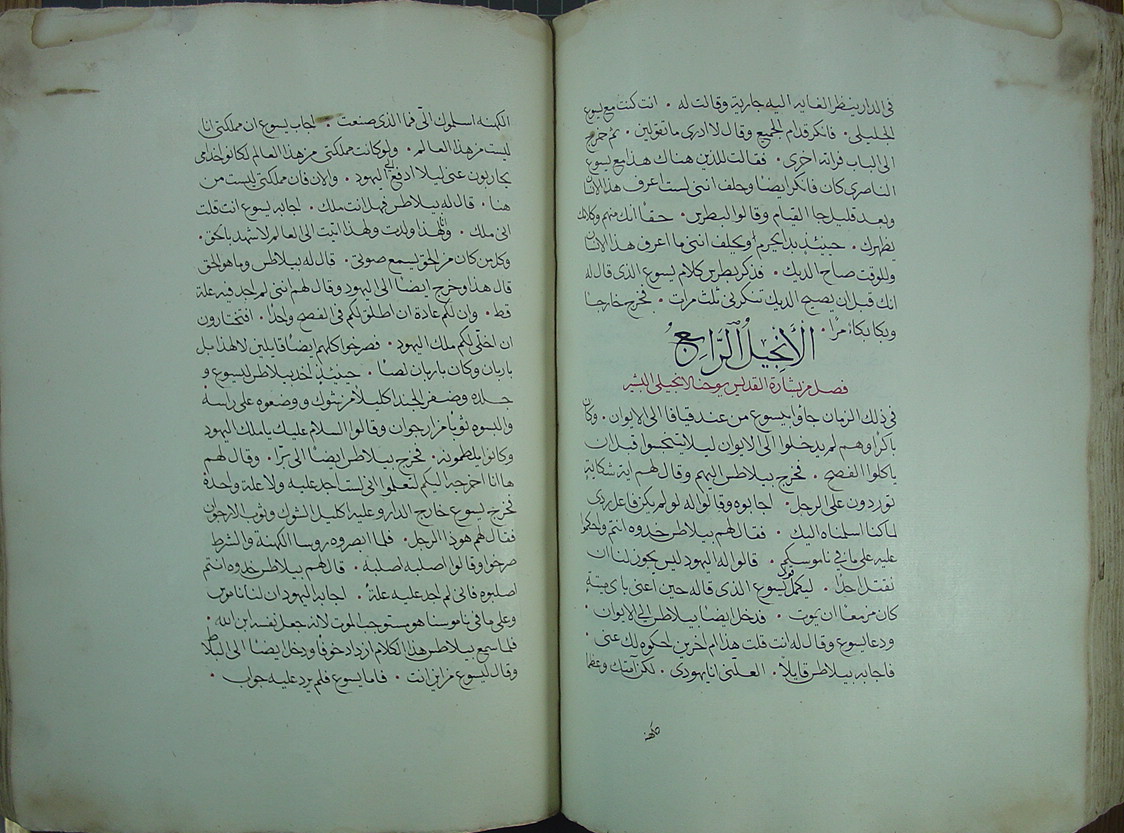 في الدار ينظر الغايه اليه جارية وقالت له • انت كنت مع يسوع
الجليلي • فانكر قدام الجميع وقال لا ادرى ما تقولين • ثم خرج
الى الباب فراته اخرى • فقالت للذين هناك هذا مع يسوع
الناصري كان فانكر ايضا وحلف انني لست اعرف هذا الانسان
وبعد قليل جا القيام وقالوا لبطرس • حقا انك منهم وكلامك
يظهرك • حينيذ بدا يحرم ويحلف انني ما اعرف هذا الانسان
وللوقت صاح الديك • فذكر بطرس كلام يسوع الذى قال له
انك قبل ان يصيح الديك تنكرني ثلث مرات • فخرج خارجا
وبكا بكاء مرا •
الانجيل الرابع
فصل من بشارة القديس يوحنا الانجيلي البشير
في ذلك الزمان جاوا بيسوع من عند قيافا الى الايوان • وكان
باكرا وهم لم يدخلوا الى الايوان ليلا يتنجسوا قبل ان
ياكلوا الفصح • فخرج بيلاطس اليهم وقال لهم اية شكاية
توردون على الرجل • اجابوه وقالوا له لو لم يكن فاعل ردى
لما كنا اسلمناه اليك • فقال لهم بيلاطس خدوه انتم واحكموا
عليه على ما في ناموسكم • قالوا له اليهود ليس يجوز لنا ان
نقتل احدا • ليكمل قول يسوع الذى قاله حين اعنى باى ميتة
كان مزمعا ان يموت • فدخل ايضا بيلاطس الى الايوان •
ودعا يسوع وقال له انت قلت هذا ام اخرين احكوه لك عنى •
فاجابه بيلاطس قايلا • العلني انا يهودى • لكن امتك وعظما
الكهنه اسلموك الي فما الذى صنعت • اجاب يسوع ان مملكتى انا
ليست من هذا العالم • ولو كانت مملكتي من هذا العالم لكانو خدامى
يحاربون عنى ليلا ادفع الى اليهود • والان فان مملكتي ليست من
هنا • قال له بيلاطس فهل انت ملك • اجابه يسوع انت قلت
انى ملك • ولهذا ولدت ولهذا اتيت الى العالم لاشهد بالحق •
وكل من كان من الحق يسمع صوتى • قال له بيلاطس وما هو الحق
قال هذا وخرج ايضا الى اليهود وقال لهم انني لم اجد فيه علة
قط • وان لكم عادة ان اطلق لكم في الفصح واحدا • افتختارون
ان اخلي لكم ملك اليهود • فصرخوا كلهم ايضا قايلين لا هذا بل
باربان وكان باربان لصا • حينيذ اخد بيلاطس ليسوع و
جلده وضفر الجند اكليلا من شوك ووضعوه على راسه
والبسوه ثوبا من ارجوان وقالوا السلام عليك يا ملك اليهود
وكانوا يلطمونه • فخرج بيلاطس ايضا الى برا • وقال لهم
ها انا اخرجه اليكم لتعلموا اني لست اجد عليه ولا علة واحدة
فخرج يسوع خارج الدار وعليه اكليل الشوك وثوب الارجوان
فقال لهم هوذا الرجل • فلما ابصروه روسا الكهنة والشرط
صرخوا وقالوا اصلبه اصلبه • قال لهم بيلاطس خدوه انتم
اصلبوه فاني لم اجد عليه علة • اجابه اليهود ان لنا ناموس
وعلى ما في ناموسنا هو مستوجب الموت لانه جعل نفسه ابن الله •
فلما سمع بيلاطس هذا الكلام ازداد خوفا ودخل ايضا الى البلاط
وقال ليسوع من اين انت • فاما يسوع فلم يرد عليه جواب •